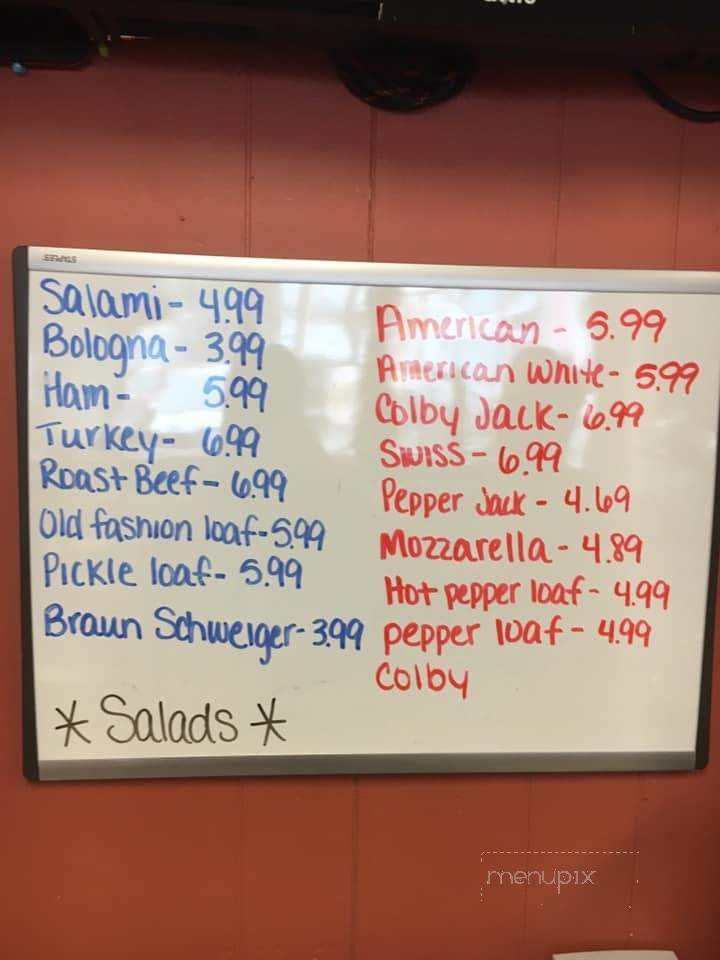 STAPLES
Salami - 4.99
Bologna - 3.99
Ham - 5.99
Turkey - 6.99
Roast Beef - 6.99
Old fashion loaf - 5.99
Pickle loaf - 5.99
Braun Schweiger - 3.99
* Salads *
American - 5.99
American White - 5.99
Colby Jack - 6.99
Swiss - 6.99
Pepper Jack - 4.69
Mozzarella - 4.89
Hot pepper loaf - 4.99
pepper loaf - 4.99
Colby
menupix